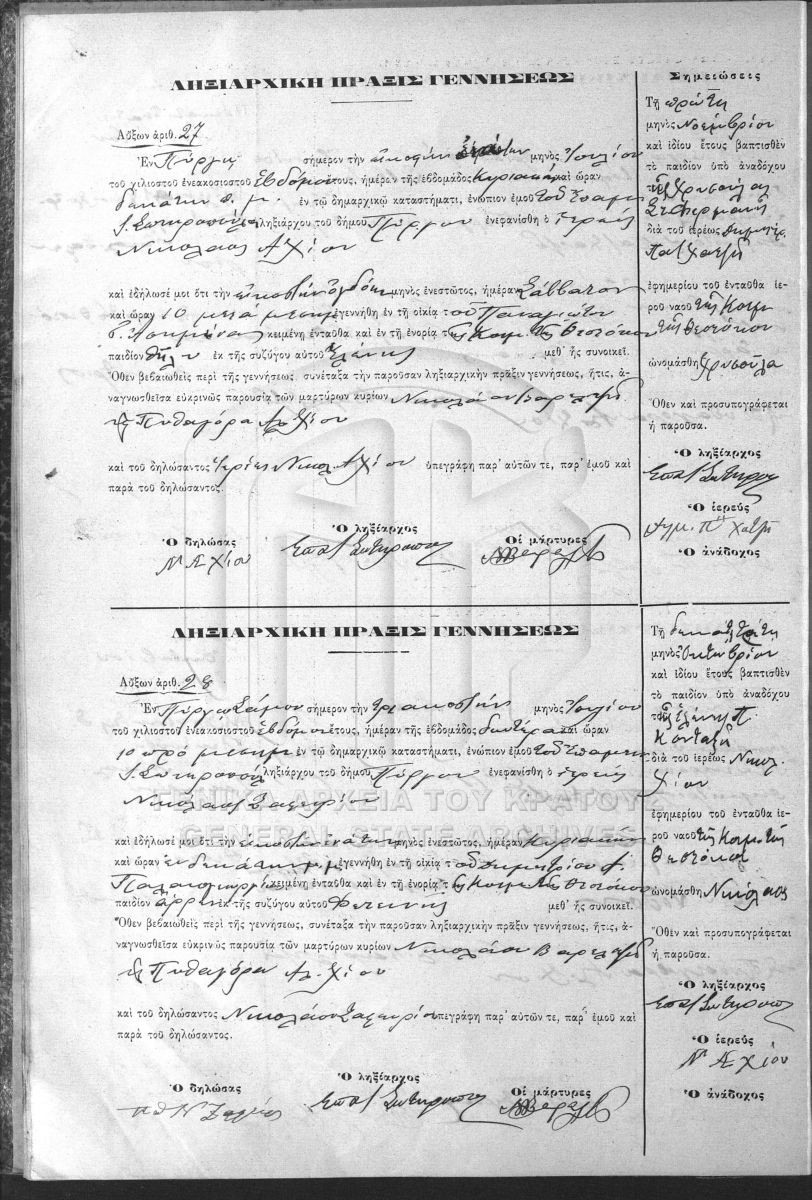 ΛΗΞΙΑΡΧΙΚΗ ΠΡΑΞΙΣ ΓΕΝΝΗΣΕΩΣ
Αὔξων ἀριθ. 27
Ἐν Πύργῳ σήμερον τὴν εἰκοστὴν μηνὸς Ἰουλίου
τοῦ χιλιοστοῦ ἐνεακοσιοστοῦ ἑβδόμου ἔτους, ἡμέραν τῆς ἑβδομάδος Κυριακὴν καὶ ὥραν
δεκάτην π. μ. ἐν τῷ δημαρχικῷ καταστήματι, ἐνώπιον ἐμοῦ τοῦ Ἐπαμ.
Σωτηροπούλου ληξιάρχου τοῦ δήμου Πύργου ἐνεφανίσθη ὁ ἱερεὺς
Νικόλαος Α Χίου
καὶ ἐδήλωσέ μοι ὅτι τὴν εἰκοστὴν ὀγδόην μηνὸς ἐνεστῶτος, ἡμέραν Σάββατον
καὶ ὥραν 10 μετὰ μεσημ. ἐγεννήθη ἐν τῇ οἰκίᾳ τοῦ Παναγιώτου
κειμένῃ ἐνταῦθα καὶ ἐν τῇ ἐνορίᾳ τῆς Κοιμ. τῆς Θεοτόκου
παιδίον θῆλυ ἐκ τῆς συζύγου αὐτοῦ Ἑλένης μεθ' ἧς συνοικεῖ.
Ὅθεν βεβαιωθεὶς περὶ τῆς γεννήσεως, συνέταξα τὴν παροῦσαν ληξιαρχικὴν πρᾶξιν γεννήσεως, ἥτις, ἀ-
ναγνωσθεῖσα εὐκρινῶς παρουσίᾳ τῶν μαρτύρων κυρίων Νικολάου
Πυθαγόρα Αλ. Χίου
καὶ τοῦ δηλώσαντος ἱερέως Νικολ. Α Χίου ὑπεγράφη παρ' αὐτῶν τε, παρ' ἐμοῦ καὶ
παρὰ τοῦ δηλώσαντος.
Ὁ δηλώσας
Ν Α Χίου
Ὁ ληξίαρχος
Επαμ Σωτηροπ
Οἱ μάρτυρες
Σημειώσεις
Τῇ πρώτῃ
μηνὸς Νοεμβρίου
καὶ ἰδίου ἔτους βαπτισθὲν
τὸ παιδίον ὑπὸ ἀναδόχου
τῆς Χρυσούλας
διὰ τοῦ ἱερέως Δημητρ.
Παπ Χατζῆ
ἐφημερίου τοῦ ἐνταῦθα ἱε-
ροῦ ναοῦ τῆς Κοιμ
τῆς Θεοτόκου
ὠνομάσθη Χρυσούλα
Ὅθεν καὶ προσυπογράφεται
ἡ παροῦσα.
Ὁ ληξίαρχος
Επαμ Σωτηροπ
Ὁ ἱερεὺς
Δημ. Ππ Χατζῆ
Ὁ ἀνάδοχος
ΛΗΞΙΑΡΧΙΚΗ ΠΡΑΞΙΣ ΓΕΝΝΗΣΕΩΣ
Αὔξων ἀριθ. 28
Ἐν Πύργῳ Σάμου σήμερον τὴν τριακοστὴν μηνὸς Ἰουλίου
τοῦ χιλιοστοῦ ἐνεακοσιοστοῦ ἑβδόμου ἔτους, ἡμέραν τῆς ἑβδομάδος δευτέραν καὶ ὥραν
10 πρὸ μεσημ ἐν τῷ δημαρχικῷ καταστήματι, ἐνώπιον ἐμοῦ τοῦ Ἐπαμειν
Σωτηροπούλ ληξιάρχου τοῦ δήμου Πύργου ἐνεφανίσθη ὁ ἱερεὺς
Νικόλαος Ζαφειρίου
καὶ ἐδήλωσέ μοι ὅτι τὴν εἰκοστὴν ἐνάτην μηνὸς ἐνεστῶτος, ἡμέραν Κυριακὴν
καὶ ὥραν ἑνδεκάτην π. μ. ἐγεννήθη ἐν τῇ οἰκίᾳ τοῦ Δημητρίου
κειμένῃ ἐνταῦθα καὶ ἐν τῇ ἐνορίᾳ τῆς Κοιμ. τῆς Θεοτόκου
παιδίον ἄρρεν ἐκ τῆς συζύγου αὐτοῦ μεθ' ἧς συνοικεῖ.
Ὅθεν βεβαιωθεὶς περὶ τῆς γεννήσεως, συνέταξα τὴν παροῦσαν ληξιαρχικὴν πρᾶξιν γεννήσεως, ἥτις, ἀ-
ναγνωσθεῖσα εὐκρινῶς παρουσίᾳ τῶν μαρτύρων κυρίων Νικολάου
Πυθαγόρα Αλ. Χίου
καὶ τοῦ δηλώσαντος Νικολάου Ζαφειρίου ὑπεγράφη παρ' αὐτῶν τε, παρ' ἐμοῦ καὶ
παρὰ τοῦ δηλώσαντος.
Ὁ δηλώσας
Ὁ ληξίαρχος
Επαμ Σωτηροπ
Οἱ μάρτυρες
Τῇ δεκάτῃ τρίτῃ
μηνὸς Ὀκτωβρίου
καὶ ἰδίου ἔτους βαπτισθὲν
τὸ παιδίον ὑπὸ ἀναδόχου
τῆς Ἑλένης Π.
Κονταξῆ
διὰ τοῦ ἱερέως Νικολ.
Χίου
ἐφημερίου τοῦ ἐνταῦθα ἱε-
ροῦ ναοῦ τῆς Κοιμ τῆς
Θεοτόκου
ὠνομάσθη Νικόλαος
Ὅθεν καὶ προσυπογράφεται
ἡ παροῦσα.
Ὁ ληξίαρχος
Επαμ Σωτηροπ
Ὁ ἱερεὺς
Ν Α Χίου
Ὁ ἀνάδοχος
ΓΕΝΙΚΑ ΑΡΧΕΙΑ ΤΟΥ ΚΡΑΤΟΥΣ
GENERAL STATE ARCHIVES